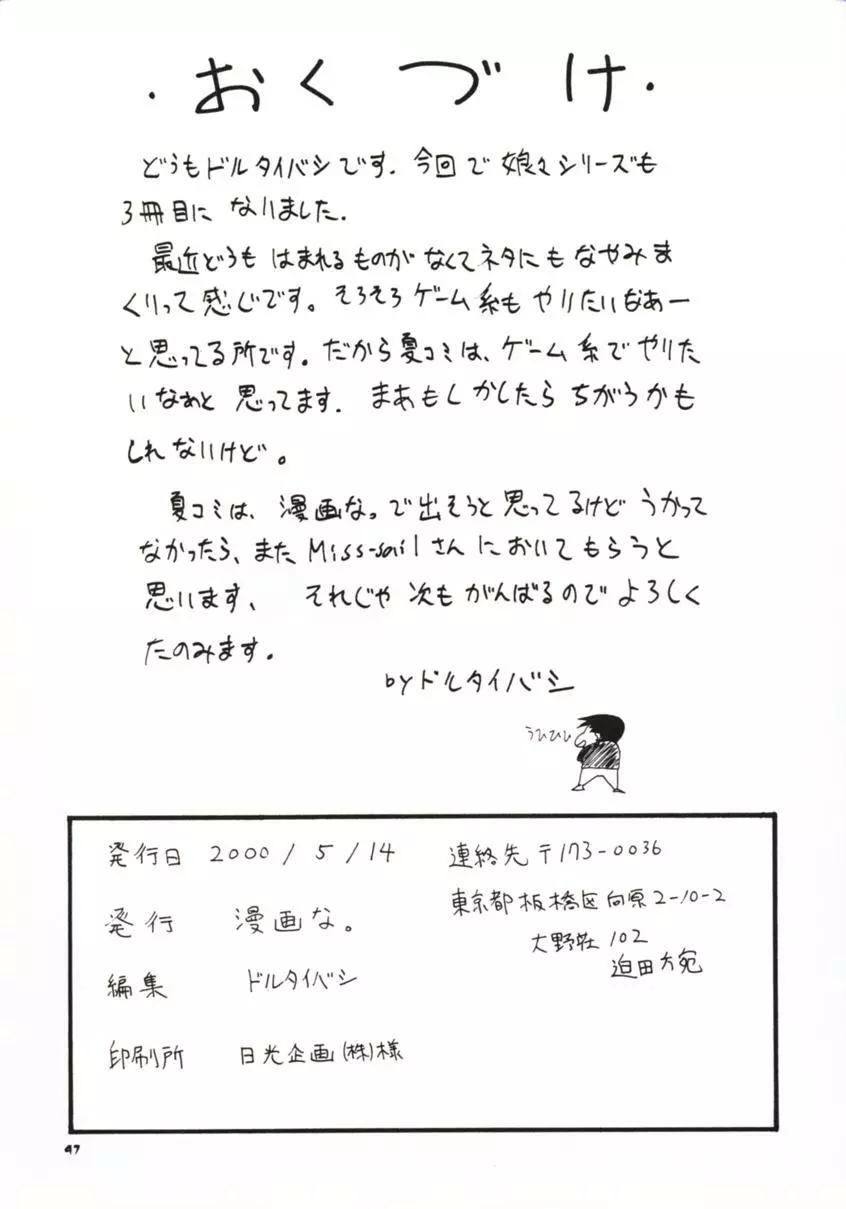 ・おくづけ・
どうもドルタイバシです. 今回で娘々シリーズも
3冊目になりました.
最近どうもはまれるものがなくてネタにもなやみま
くりって感じです。そろそろゲーム系もやりたいなあー
と思ってる所です。だから夏コミは、ゲーム系でやりた
いなぁと思ってます. まあもしかしたらちがうかも
しれないけど。
夏コミは、漫画な。で出そうと思ってるけどうかって
なかったら、またMiss-sailさんにおいてもらうと
思います、それじゃ次もがんばるのでよろしく
たのみます。
byドルタイバシ
うひひひ
発行日 2000/5/14
発行 漫画な。
編集 ドルタイバシ
印刷所 日光企画(株)様
連絡先〒173-0036
東京都板橋区向原2-10-2
大野荘102
迫田方宛
47